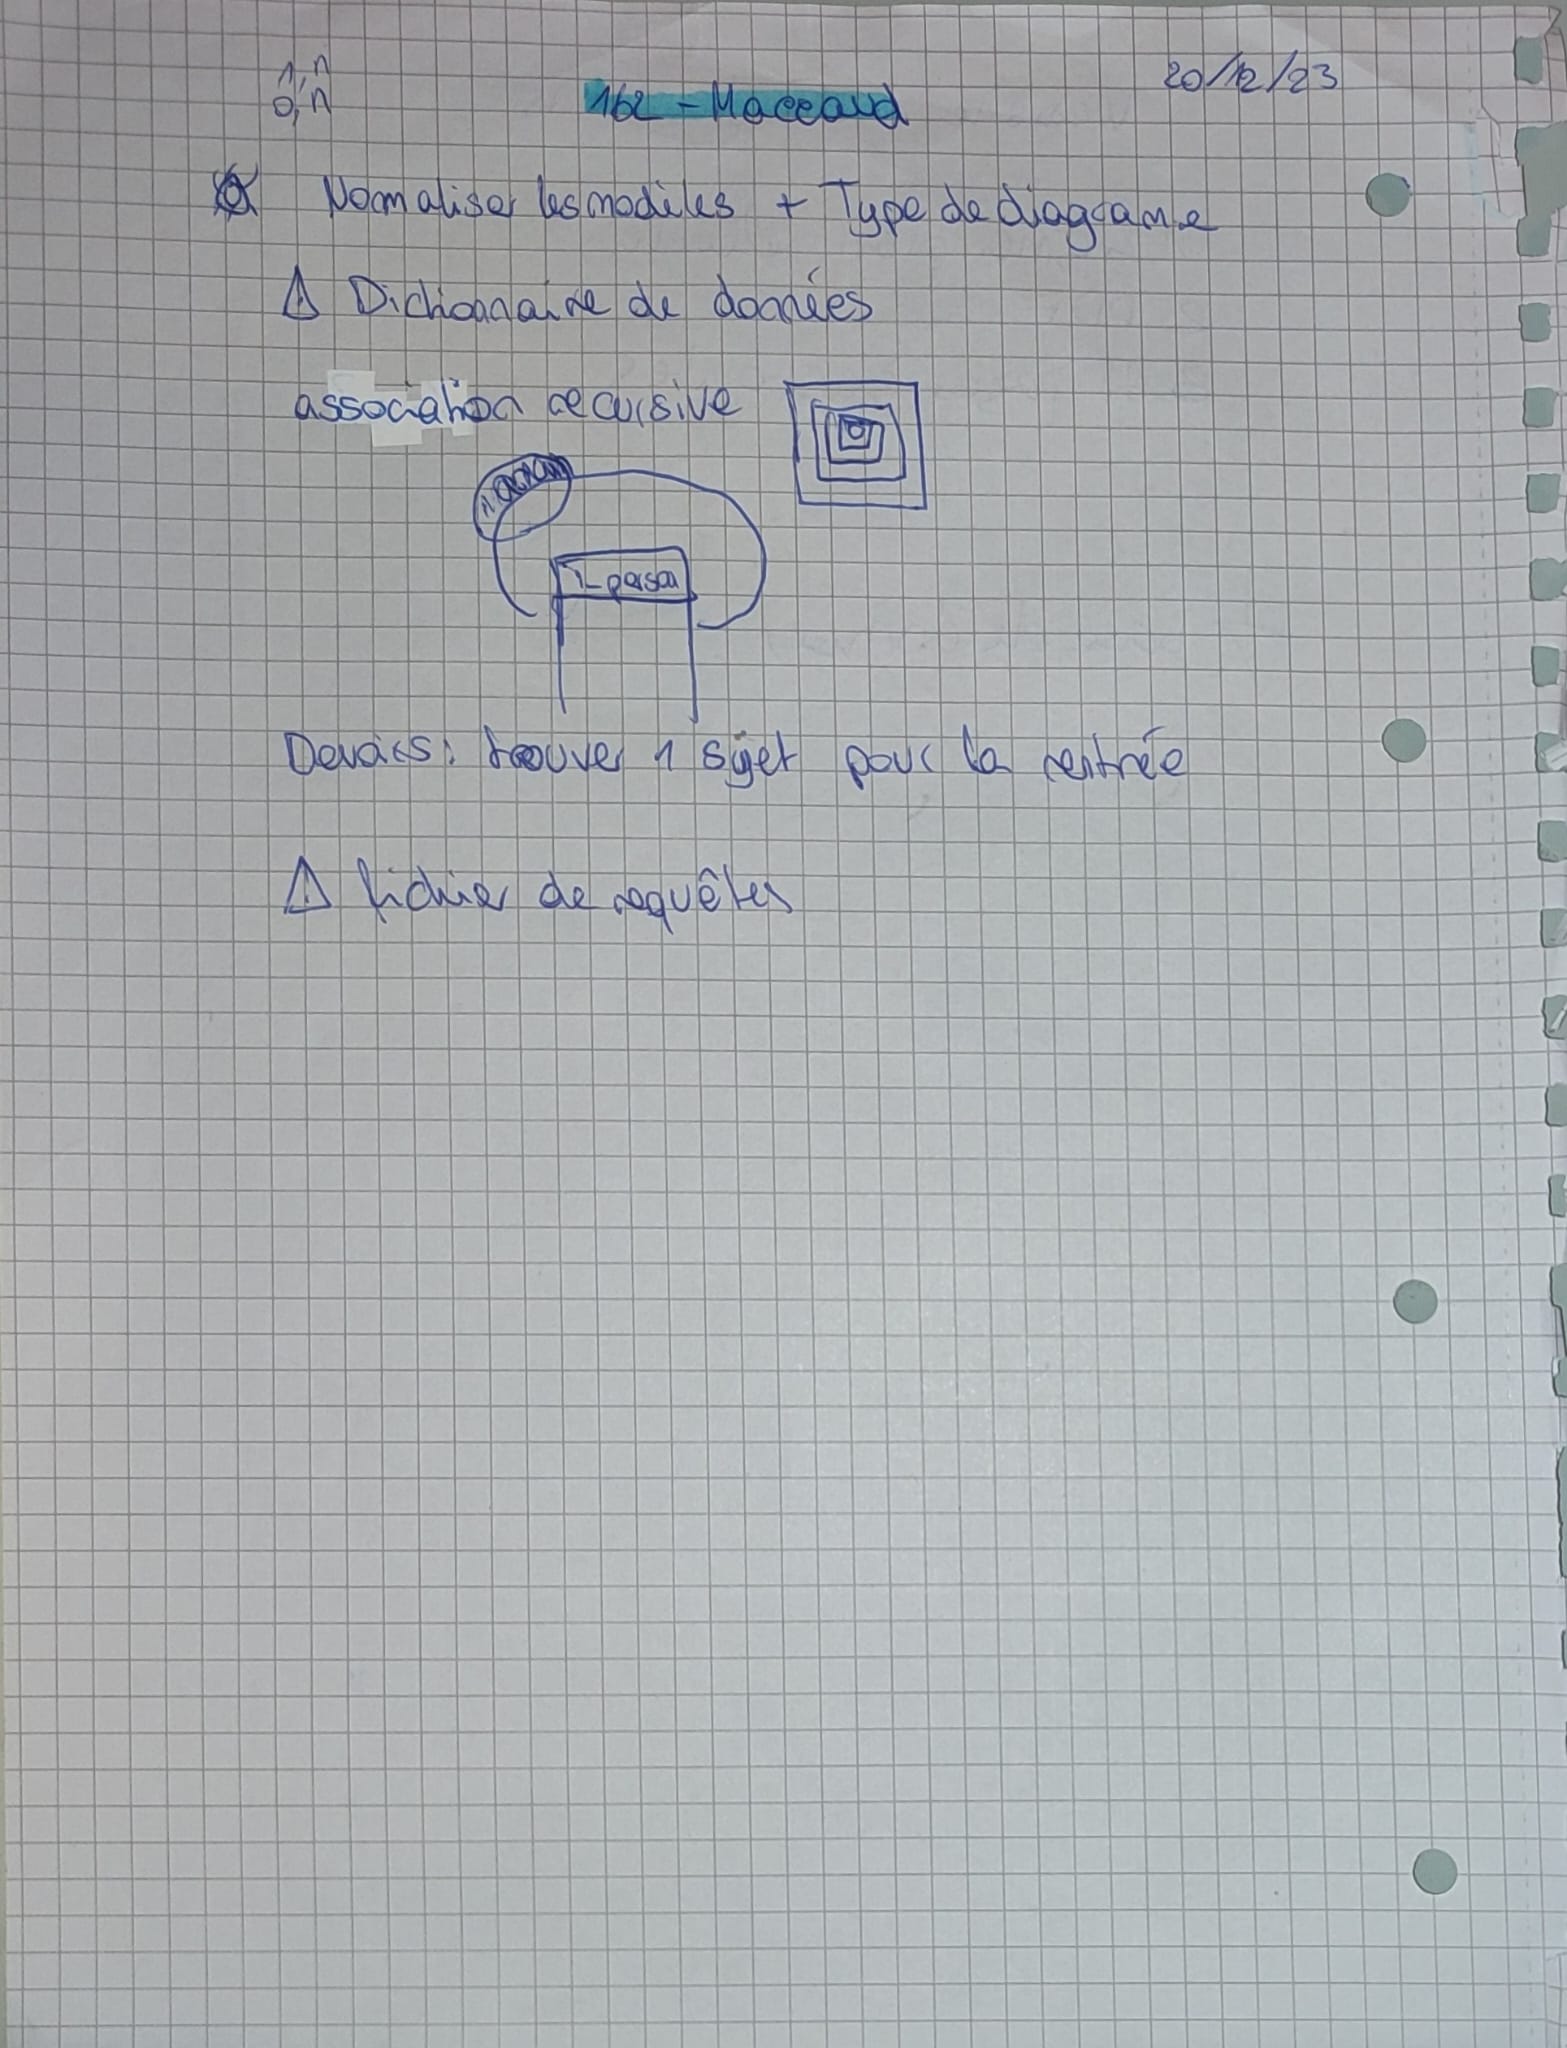 1,n
0,n
162 - Maccaud
20/12/23
Normaliser les modèles + Type de diagrame
⚠ Dictionnaire de données
association recursive
T_person
Devoirs: trouver 1 sujet pour la rentrée
⚠ fichier de requêtes